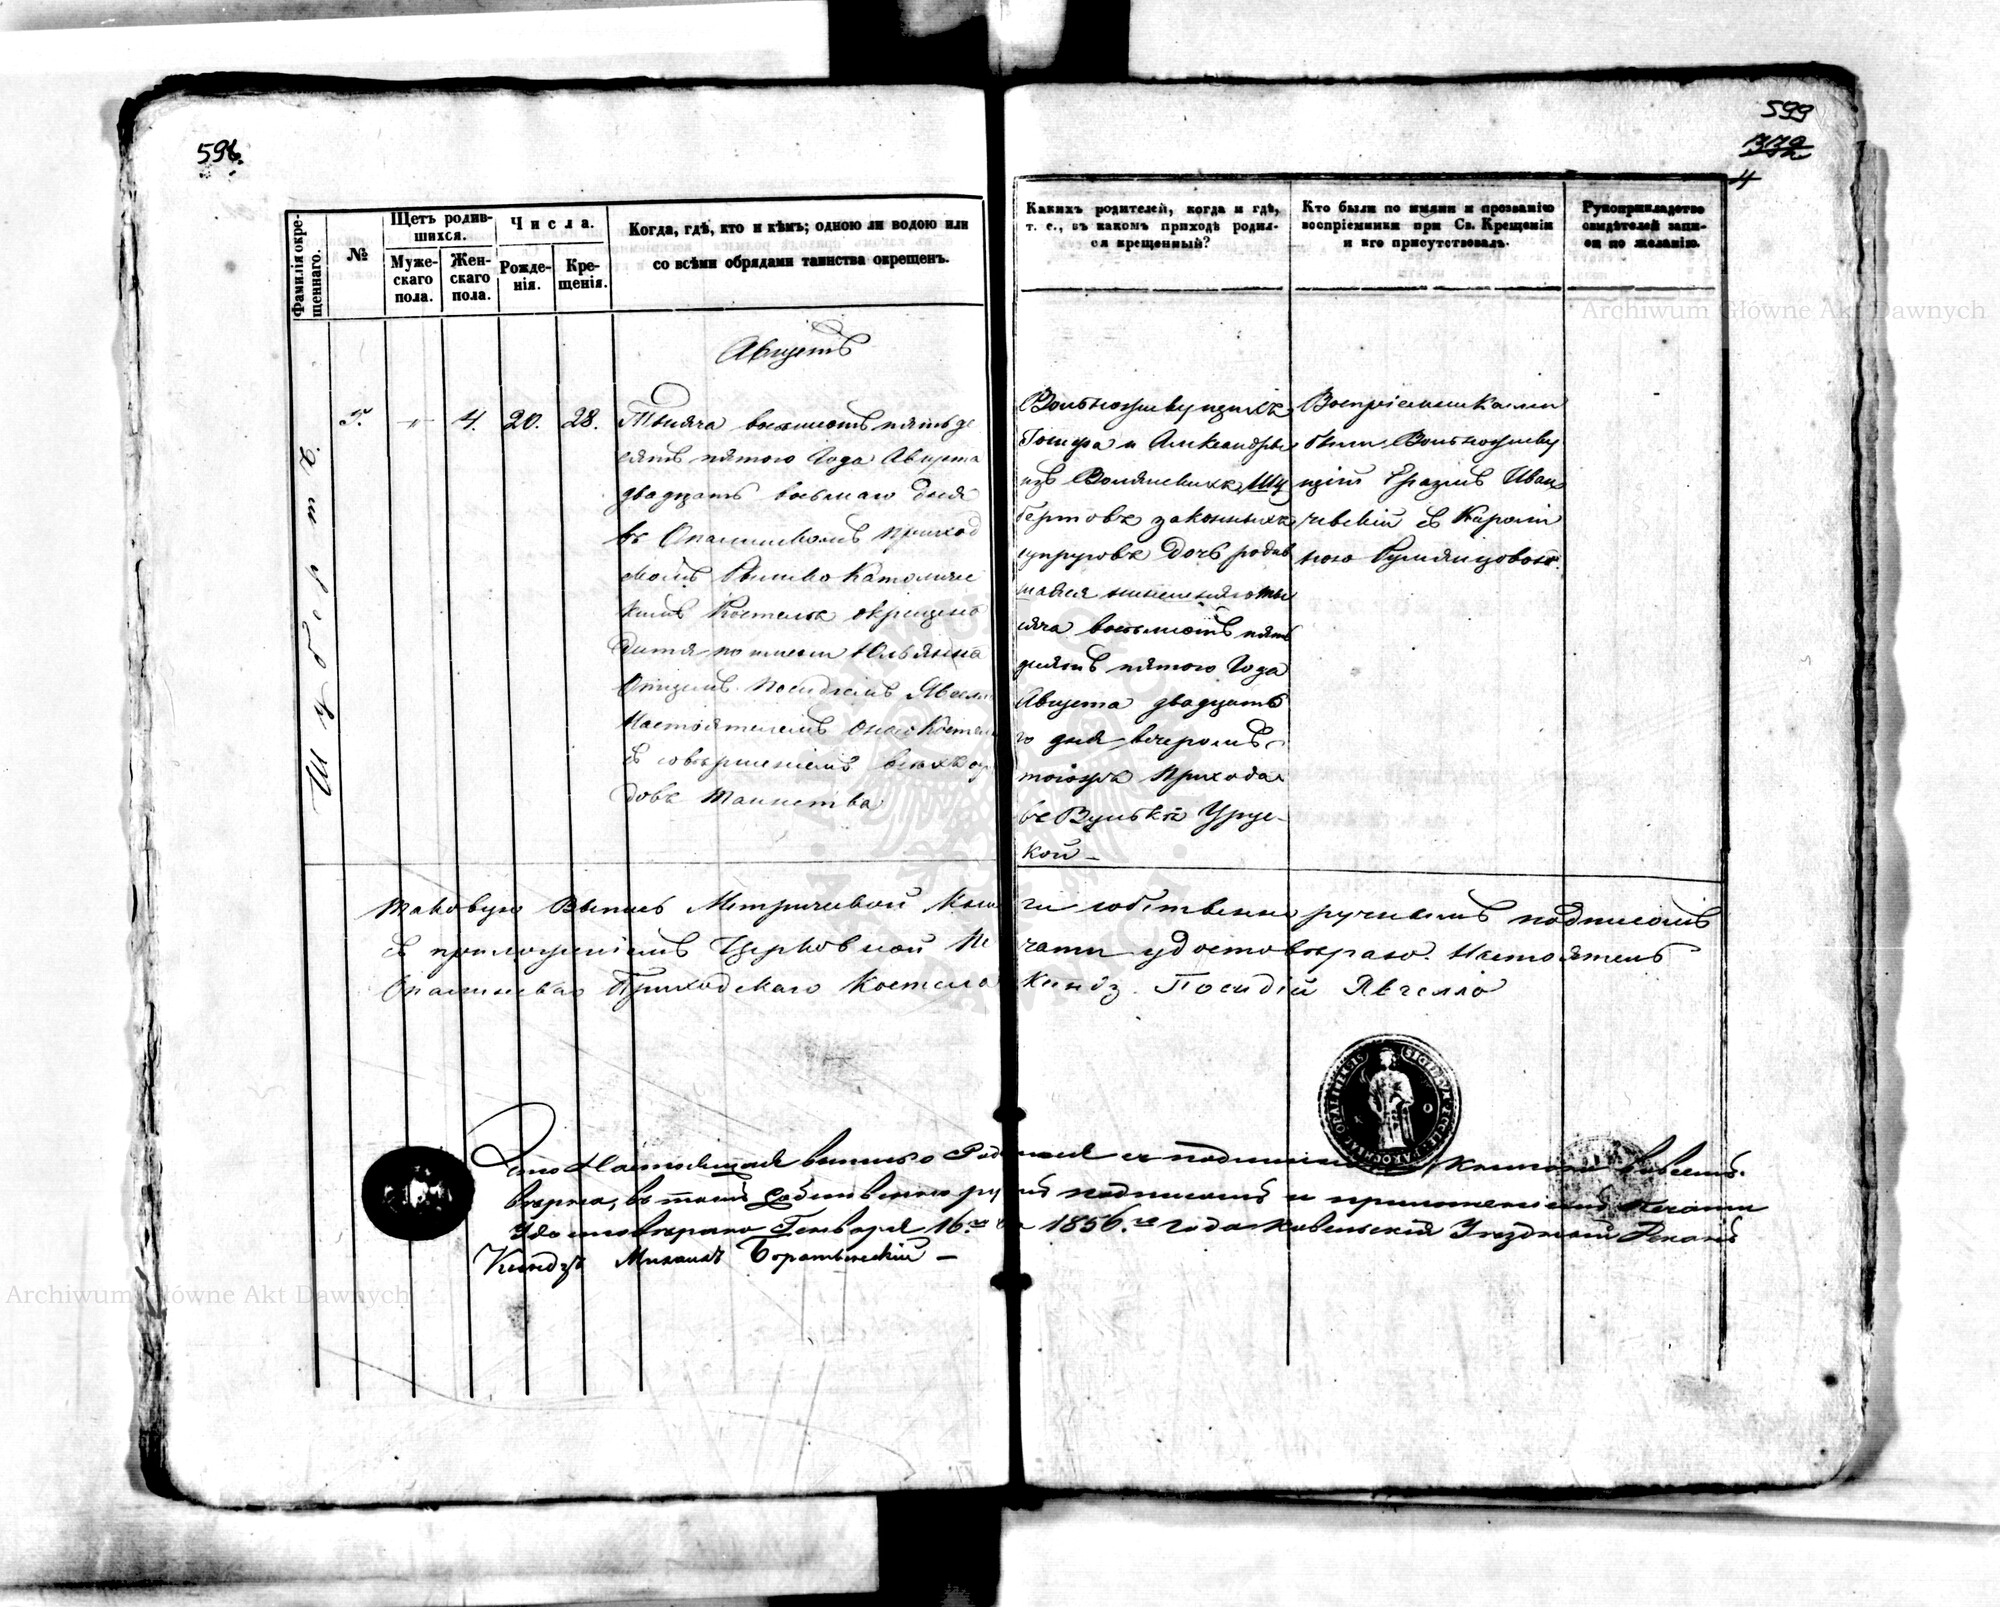 596.
599
4
Фамилія окре-
щеннаго.
№
Щетъ родив-
шихся.
Муже-
скаго
пола.
Жен-
скаго
пола.
Числа.
Рожде-
нія.
Кре-
щенія.
Когда, гдѣ, кто и кѣмъ; одною ли водою или
со всѣми обрядами таинства окрещенъ.
Какихъ родителей, когда и гдѣ,
т. е., въ какомъ приходѣ родил-
ся крещенный?
Кто были по имяни и прозванію
воспріемники при Св. Крещеніи
и кто присутствовалъ.
Рукоприкладство
свидѣтелей запи-
си по желанію.
Шубертъ.
Августъ
5. 4. 20. 28.
Тысяча восемьсотъ пятьде
сятъ пятого Года Августа
двадцать восьмаго дня
въ Опалинскомъ Приход
скомъ Римско Католиче
скомъ Костелѣ окрещено
дитя по имени Юльянна
Настоятелемъ оного Косте
съ совершеніемъ всѣхъ об
довъ таинства
Вольнослужущихъ
Іосифа и Александры
изъ Волянскихъ Шу
бертовъ законныхъ
супруговъ Дочь родив
шаяся нинешняго ты
сяча восемьсотъ пять
десятъ пятого Года
Августа двадцать
го дня вечеромъ
тогожъ Прихода
въ Вулькѣ Угрус-
кой
Воспріемниками
были Вольнослужу
щій Еразмъ Иван
чевскій съ Кароли
ною Румянцовою.
Таковую Выпись Метрической Кни
ги собственно ручнымъ подписомъ
съ приложеніемъ Церковной Пе
чати удостовѣряю. Настоятель
Опалинскаго Приходскаго Костела
Ксендз
SIGILLUM ECCLESIAE PAROCHIAL OPALINENSIS
Что Настоящая выпись
вѣрна, въ томъ собственно ру подписомъ и приложеніемъ Печати
Удостовѣряю Генваря 16. 1856. года Ковельскій Уѣздный Деканъ
Ксендзъ Михаилъ Боратынскій
Archiwum Główne Akt Dawnych
Archiwum Główne Akt Dawnych